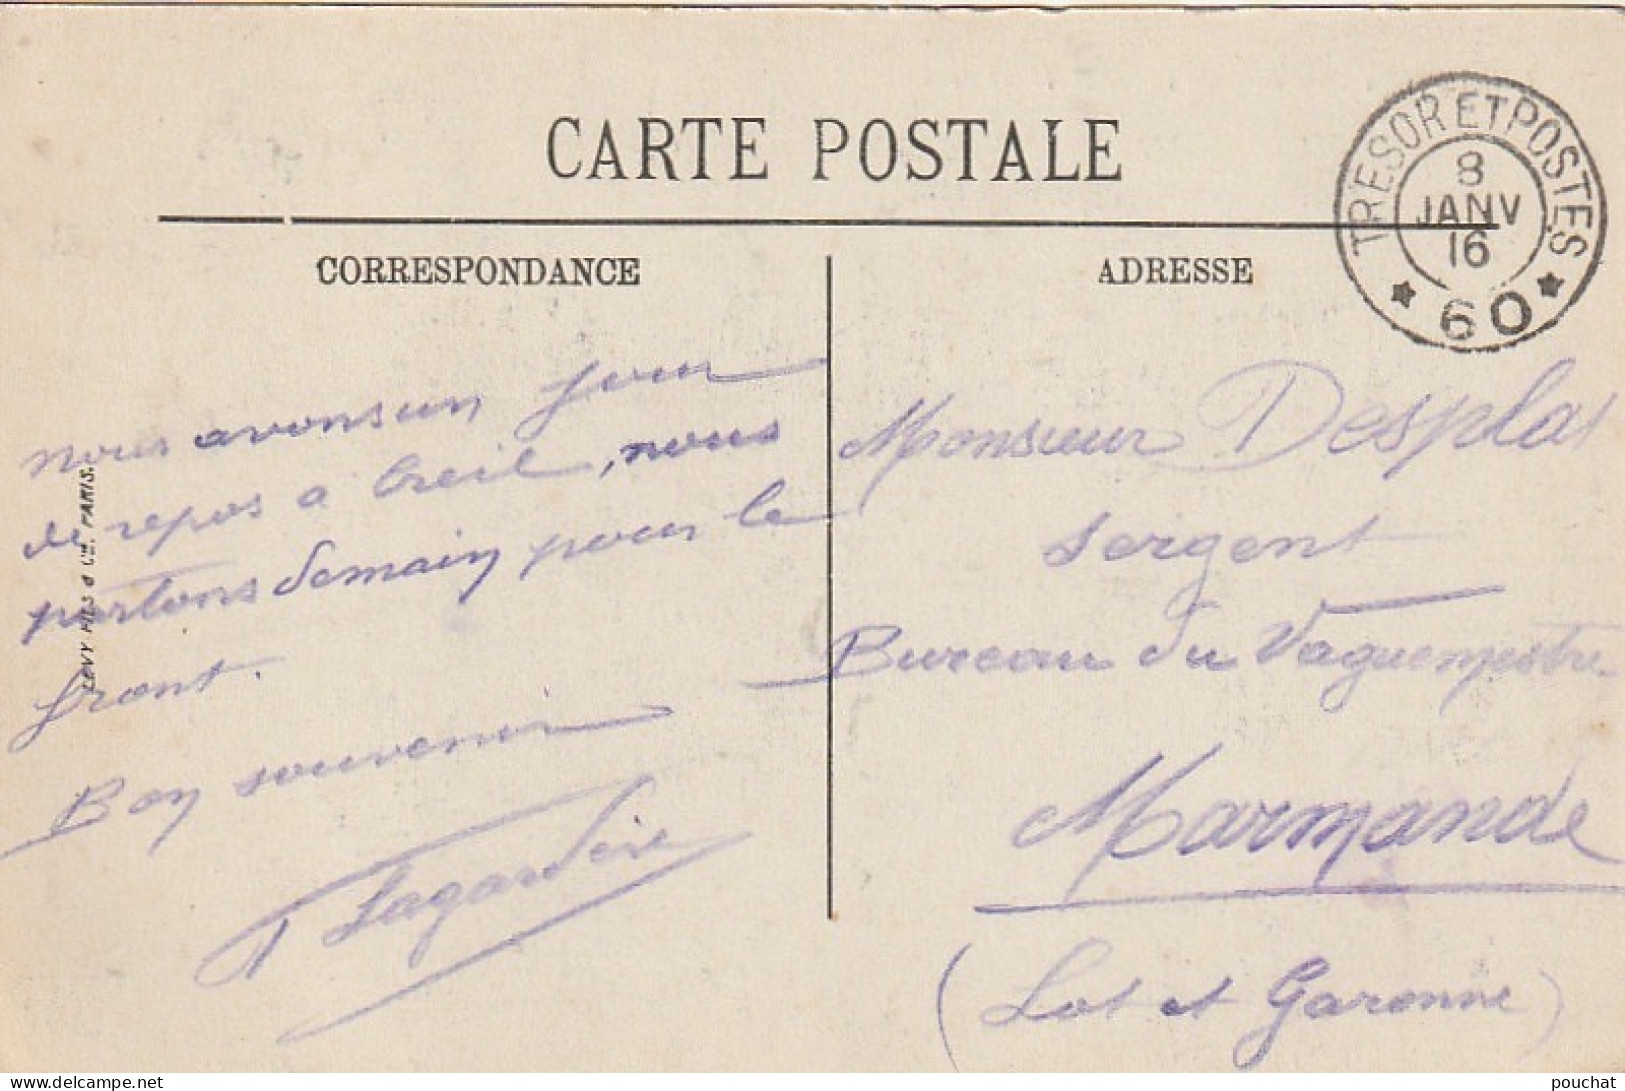 CARTE POSTALE
TRESOR ET POSTES
8
JANV
16
* 60 *
CORRESPONDANCE
nous avons un jour
de repos a Creil, nous
partons demain pour le
front.
Bon souvenir
Lagardère
LEVY FILS & Cie. PARIS.
ADRESSE
Monsieur Desplas
Sergent
Bureau du Vaguemestre
Marmande
(Lot et Garonne)
delcampe.net
pouchat